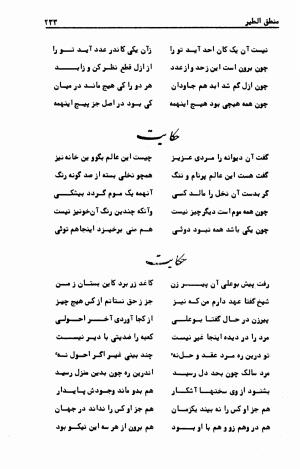 منطق الطیر
۲۳۳
نیست آن یک کان احد آید ترا
زآن یکی کاندر عدد آید ترا
چون برون است این زحد و ازعدد
از ازل قطع نظر کن و زابد
چون ازل گم شد ابد هم جاودان
هر دو را کی هیچ ماند در میان
چون همه هیچی بود هیچ اینهمه
کی بود در اصل جز پیچ اینهمه
حکایت
گفت آن دیوانه را مردی عزیز
چیست این عالم بگوو ین خانه نیز
گفت هست این عالم پرنام و ننگ
همچو نخلی بسته از صد گونه رنگ
گر بدست آن نخل را مالد کسی
آنهمه یک موم گردد بیشکی
چون همه موم است دیگرچیز نیست
وآنکه چندین رنگ آن خودنیز نیست
چون یکی باشد همه نبود دوئی
هم منی برخیزد اینجاهم توئی
حکایت
رفت پیش بوعلی آن پیر زن
کاغذ زر برد کاین بستان ز من
شیخ گفتا عهد دارم من که نیز
جز ز حق نستانم از کس هیچ چیز
پیرزن در حال گفتا بوعلی
از کجا آوردی آخر احولی
مرد را در دیده اینجا غیر نیست
کعبه را ضدیتی با دیر نیست
تو درین ره مرد عقد و حل نه
چند بینی غیر اگر احول نه
مرد سالک چون بحد دل رسید
اندرین ره چون بدین منزل رسید
بشنود از وی سخنها آشکار
هم بدو ماند وجودش پایدار
هم جز او کس را نه بیند یکزمان
هم جز او کس را نداند در جهان
هم در وهم زو و هم با او بود
هم برون از هر سه این نیکو بود